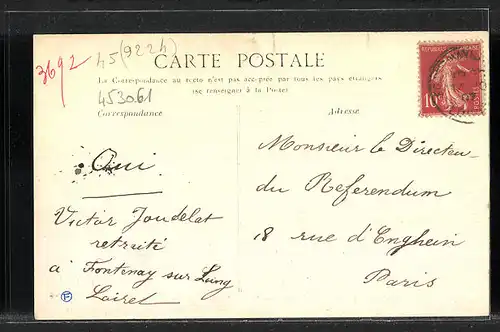 3692
45 (9224)
CARTE POSTALE
La Correspondance au recto n'est pas acceptée par tous les pays étrangers
(se renseigner à la Poste)
453061
Correspondance
Adresse
REPUBLIQUE FRANÇAISE
10
Oui
Victor Joudelat
retraité
à Fontenay sur Loing
Loiret
Monsieur le Directeur
du Referendum
18 rue d'Enghein
Paris
F